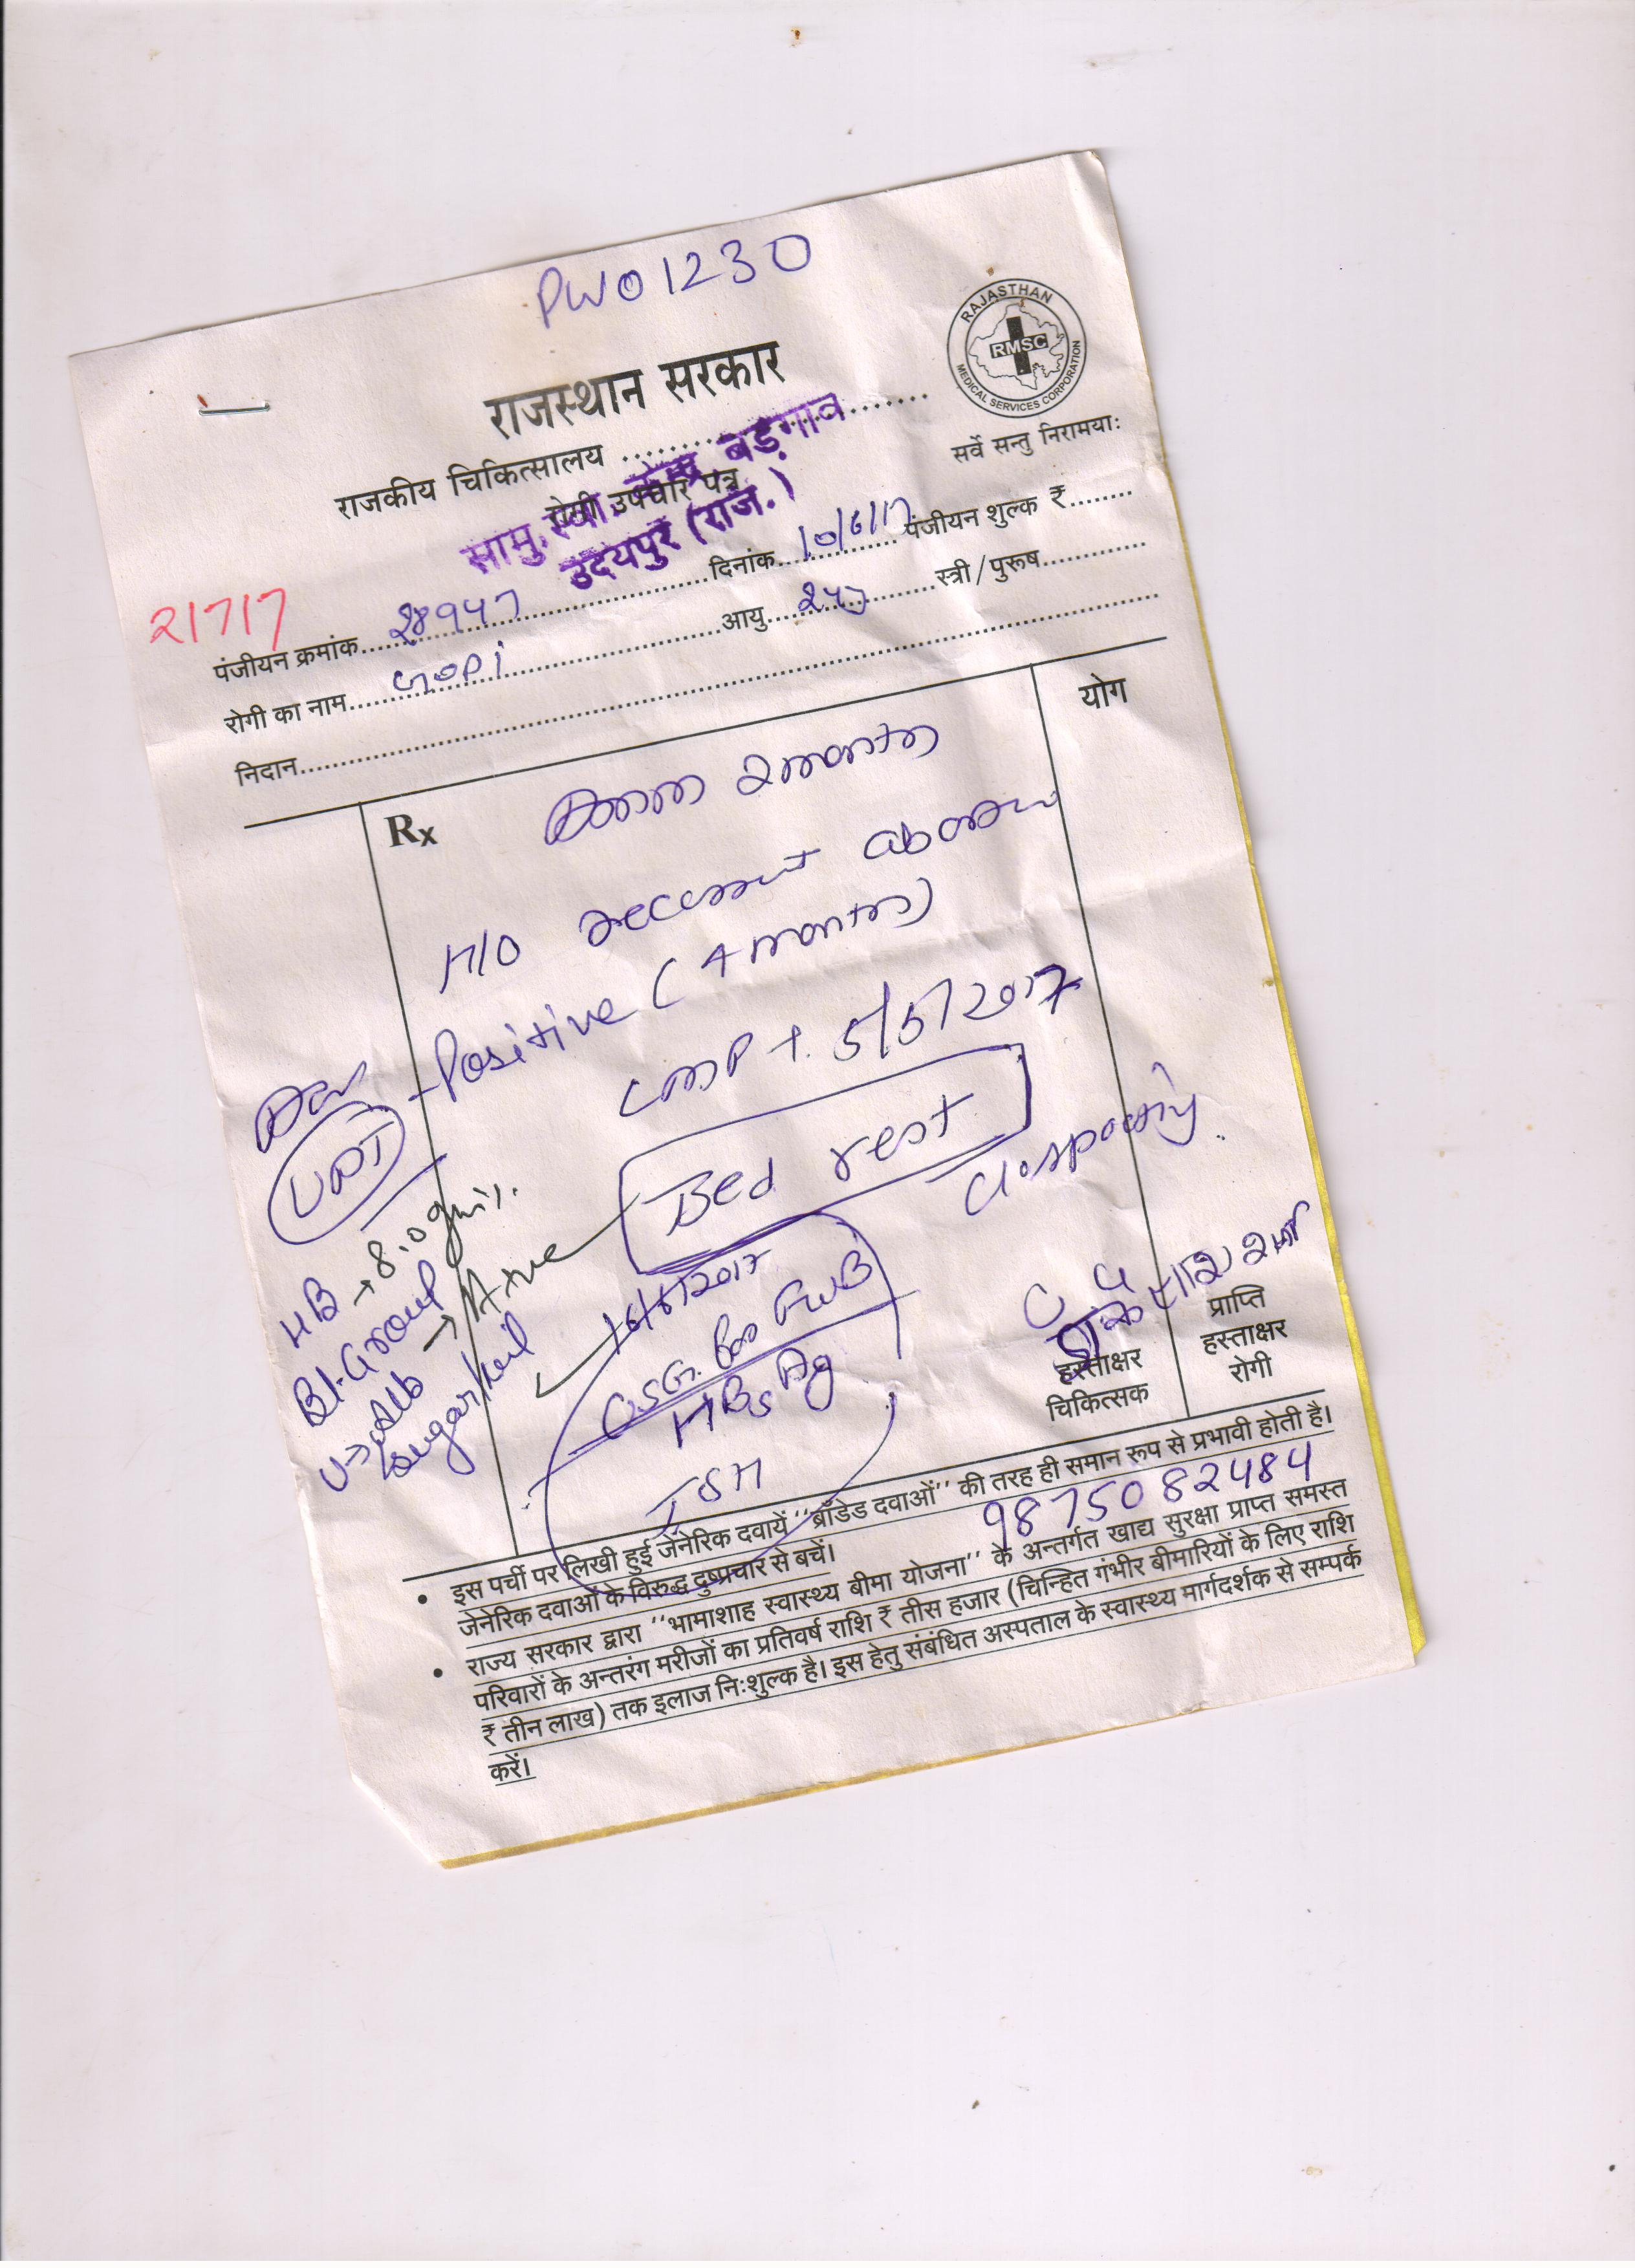 PW01230
RAJASTHAN
RMSC
MEDICAL SERVICES CORPORATION
राजस्थान सरकार
राजकीय चिकित्सालय ..................
सर्वे सन्तु निरामयाः
रोगी उपचार पत्र
सामु. स्वा. केन्द्र बड़गाव
उदयपुर (राज.)
21717
पंजीयन क्रमांक 28947 दिनांक 10/6/17 पंजीयन शुल्क ₹
रोगी का नाम GOPi आयु 24y स्त्री/पुरूष
निदान
Rx
योग
2 months
H/O recent
Positive (4 months)
LMP +. 5/5/2017
Adv
UPT
Bed rest
HB → 8.0 gm%
Bl. Group → A+ve
U → Alb
Sugar Nil
16/6/2017
USG. for FWB
HBsAg
TSH
हस्ताक्षर
चिकित्सक
प्राप्ति
हस्ताक्षर
रोगी
• इस पर्ची पर लिखी हुई जेनेरिक दवायें ''ब्रॉंडेड दवाओं'' की तरह ही समान रूप से प्रभावी होती है।
जेनेरिक दवाओं के विरुद्ध दुष्प्रचार से बचें।
9875082484
• राज्य सरकार द्वारा ''भामाशाह स्वास्थ्य बीमा योजना'' के अन्तर्गत खाद्य सुरक्षा प्राप्त समस्त
परिवारों के अन्तरंग मरीजों का प्रतिवर्ष राशि ₹ तीस हजार (चिन्हित गंभीर बीमारियों के लिए राशि
₹ तीन लाख) तक इलाज निःशुल्क है। इस हेतु संबंधित अस्पताल के स्वास्थ्य मार्गदर्शक से सम्पर्क
करें।